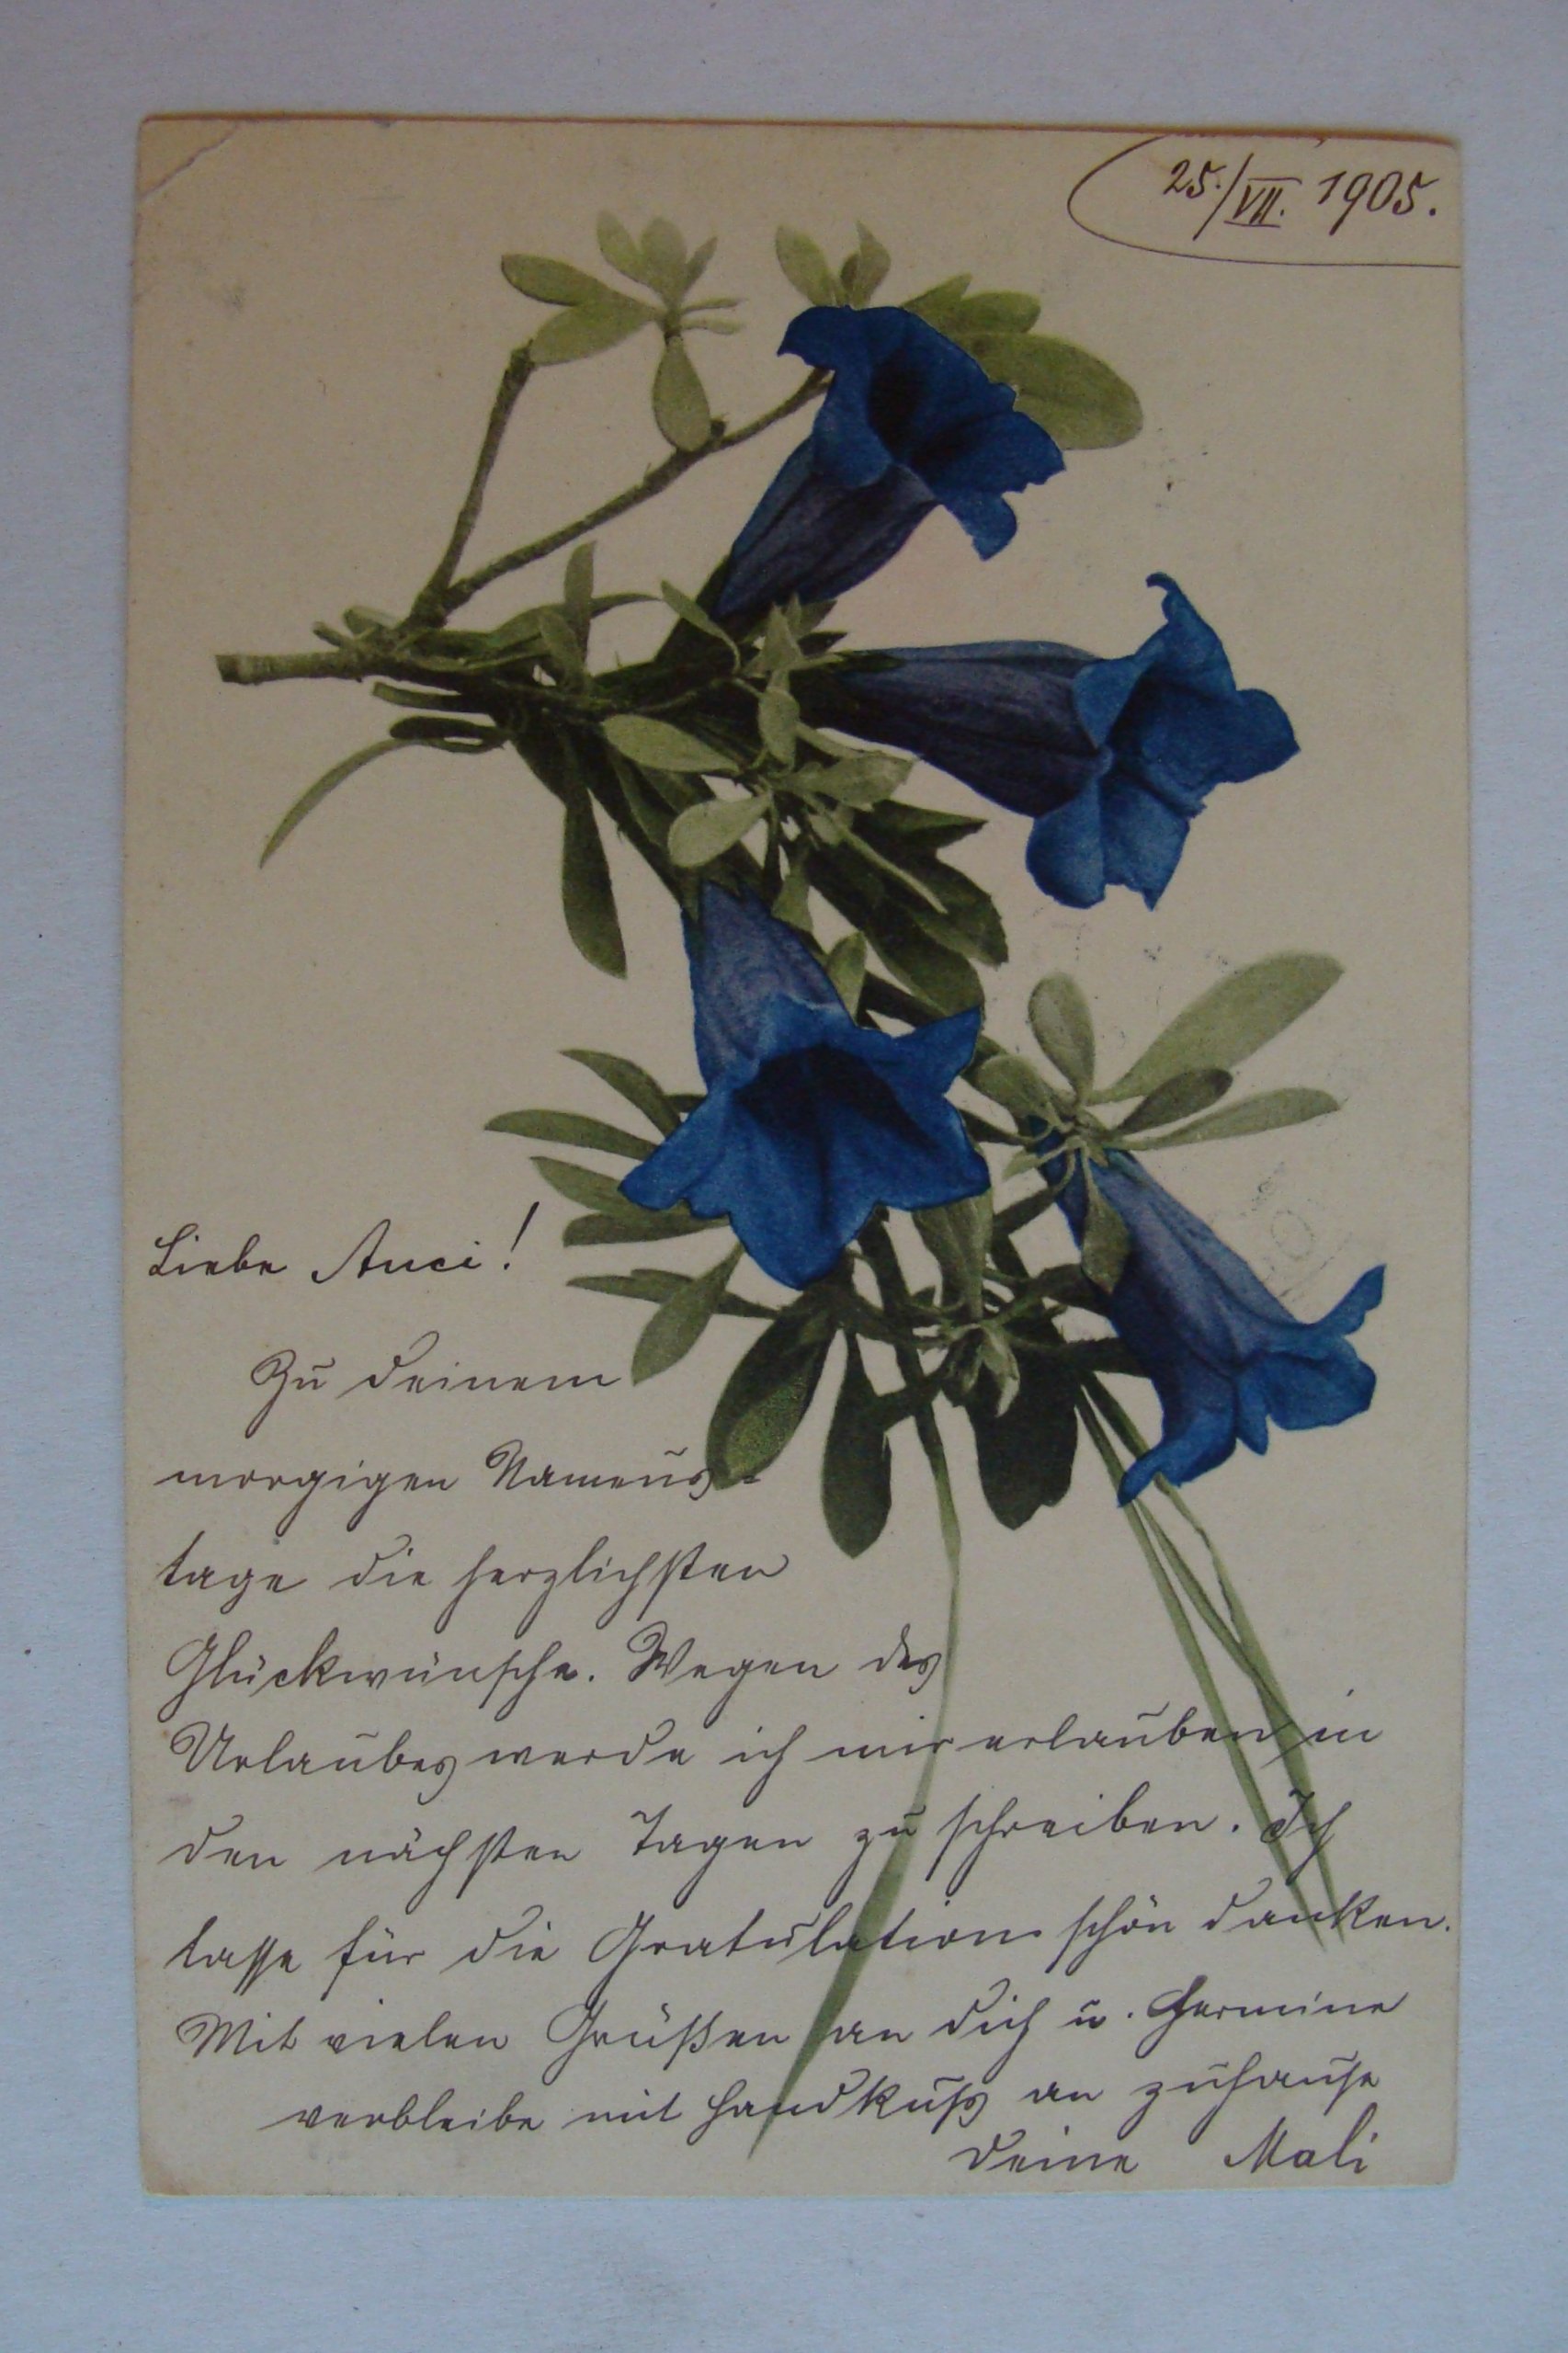 25./VII. 1905.
Liebe Anci!
Zu Deinem
morgigen Namens-
tage die herzlichsten
Glückwünsche. Wegen des
Urlaubes werde ich mir erlauben in
den nächsten Tagen zu schreiben. Ich
lasse für die Gratulation schön danken.
Mit vielen Grüßen an Dich u. Hermine
verbleibe mit Handkuß an zuhause
Deine Mali